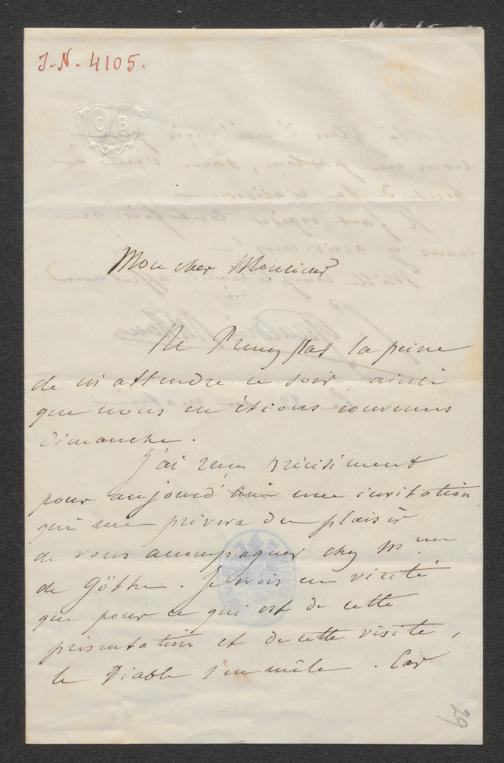 J.-N. 4105.
C B
Mon cher Monsieur
Ne Prenez pas la peine
de m'attendre ce soir, ainsi
que nous en étions convenus
Dimanche.
J'ai reçu précisément
pour aujourd'hui une invitation
qui me privera du plaisir
de vous accompagner chez Mme
de Göthe. Je crois en vérité
que pour ce qui est de cette
présentation et de cette visite,
le Diable s'en mêle. Car
29